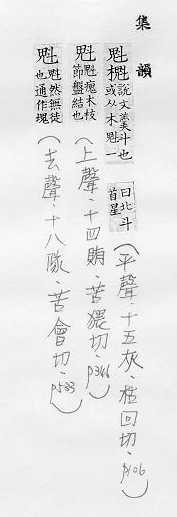 集韻
魁櫆 說文羹斗也或从木魁一曰北斗首星
(平聲、十五灰、枯回切、p.106)
魁 魁瘣木枝節盤結也
(上聲、十四賄、苦猥切、p.346)
魁 魁然無徒也通作塊
(去聲、十八隊、苦會切、p.533)